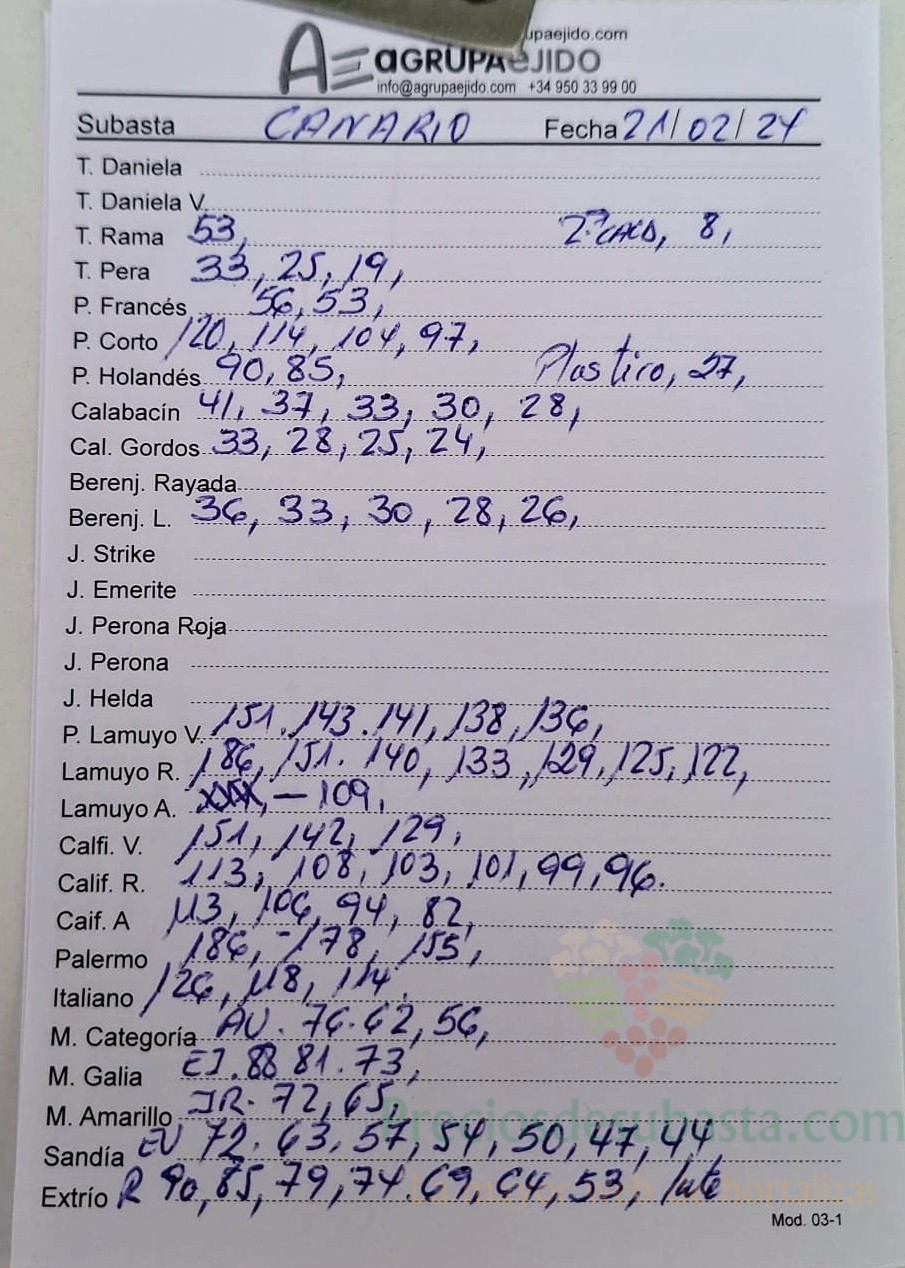 upaejido.com
AE aGRUPAeJIDO
info@agrupaejido.com +34 950 33 99 00
Subasta CANARIO Fecha 21/02/24
T. Daniela
T. Daniela V.
T. Rama 53, 8,
T. Pera 33, 25, 19,
P. Francés 56, 53,
P. Corto 120, 114, 104, 97,
P. Holandés 90, 85, Plastico, 27,
Calabacín 41, 37, 33, 30, 28,
Cal. Gordos 33, 28, 25, 24,
Berenj. Rayada
Berenj. L. 36, 33, 30, 28, 26,
J. Strike
J. Emerite
J. Perona Roja
J. Perona
J. Helda
P. Lamuyo V. 151. 143. 141, 138, 136,
Lamuyo R. 186, 151. 140, 133, 129, 125, 122,
Lamuyo A. - 109,
Calfi. V. 151, 142, 129,
Calif. R. 113, 108, 103, 101, 99, 96.
Caif. A 113, 106, 94, 82,
Palermo 186, -178, 155,
Italiano 126, 118, 114.
M. Categoría AU. 76. 62, 56,
M. Galia EJ. 88 81. 73,
M. Amarillo JR. 72, 65,
Sandía EU 72. 63, 57, 54, 50, 47, 44
Extrío R 90, 85, 79, 74. 69, 64, 53,
Preciosdesubasta.com
Mod. 03-1